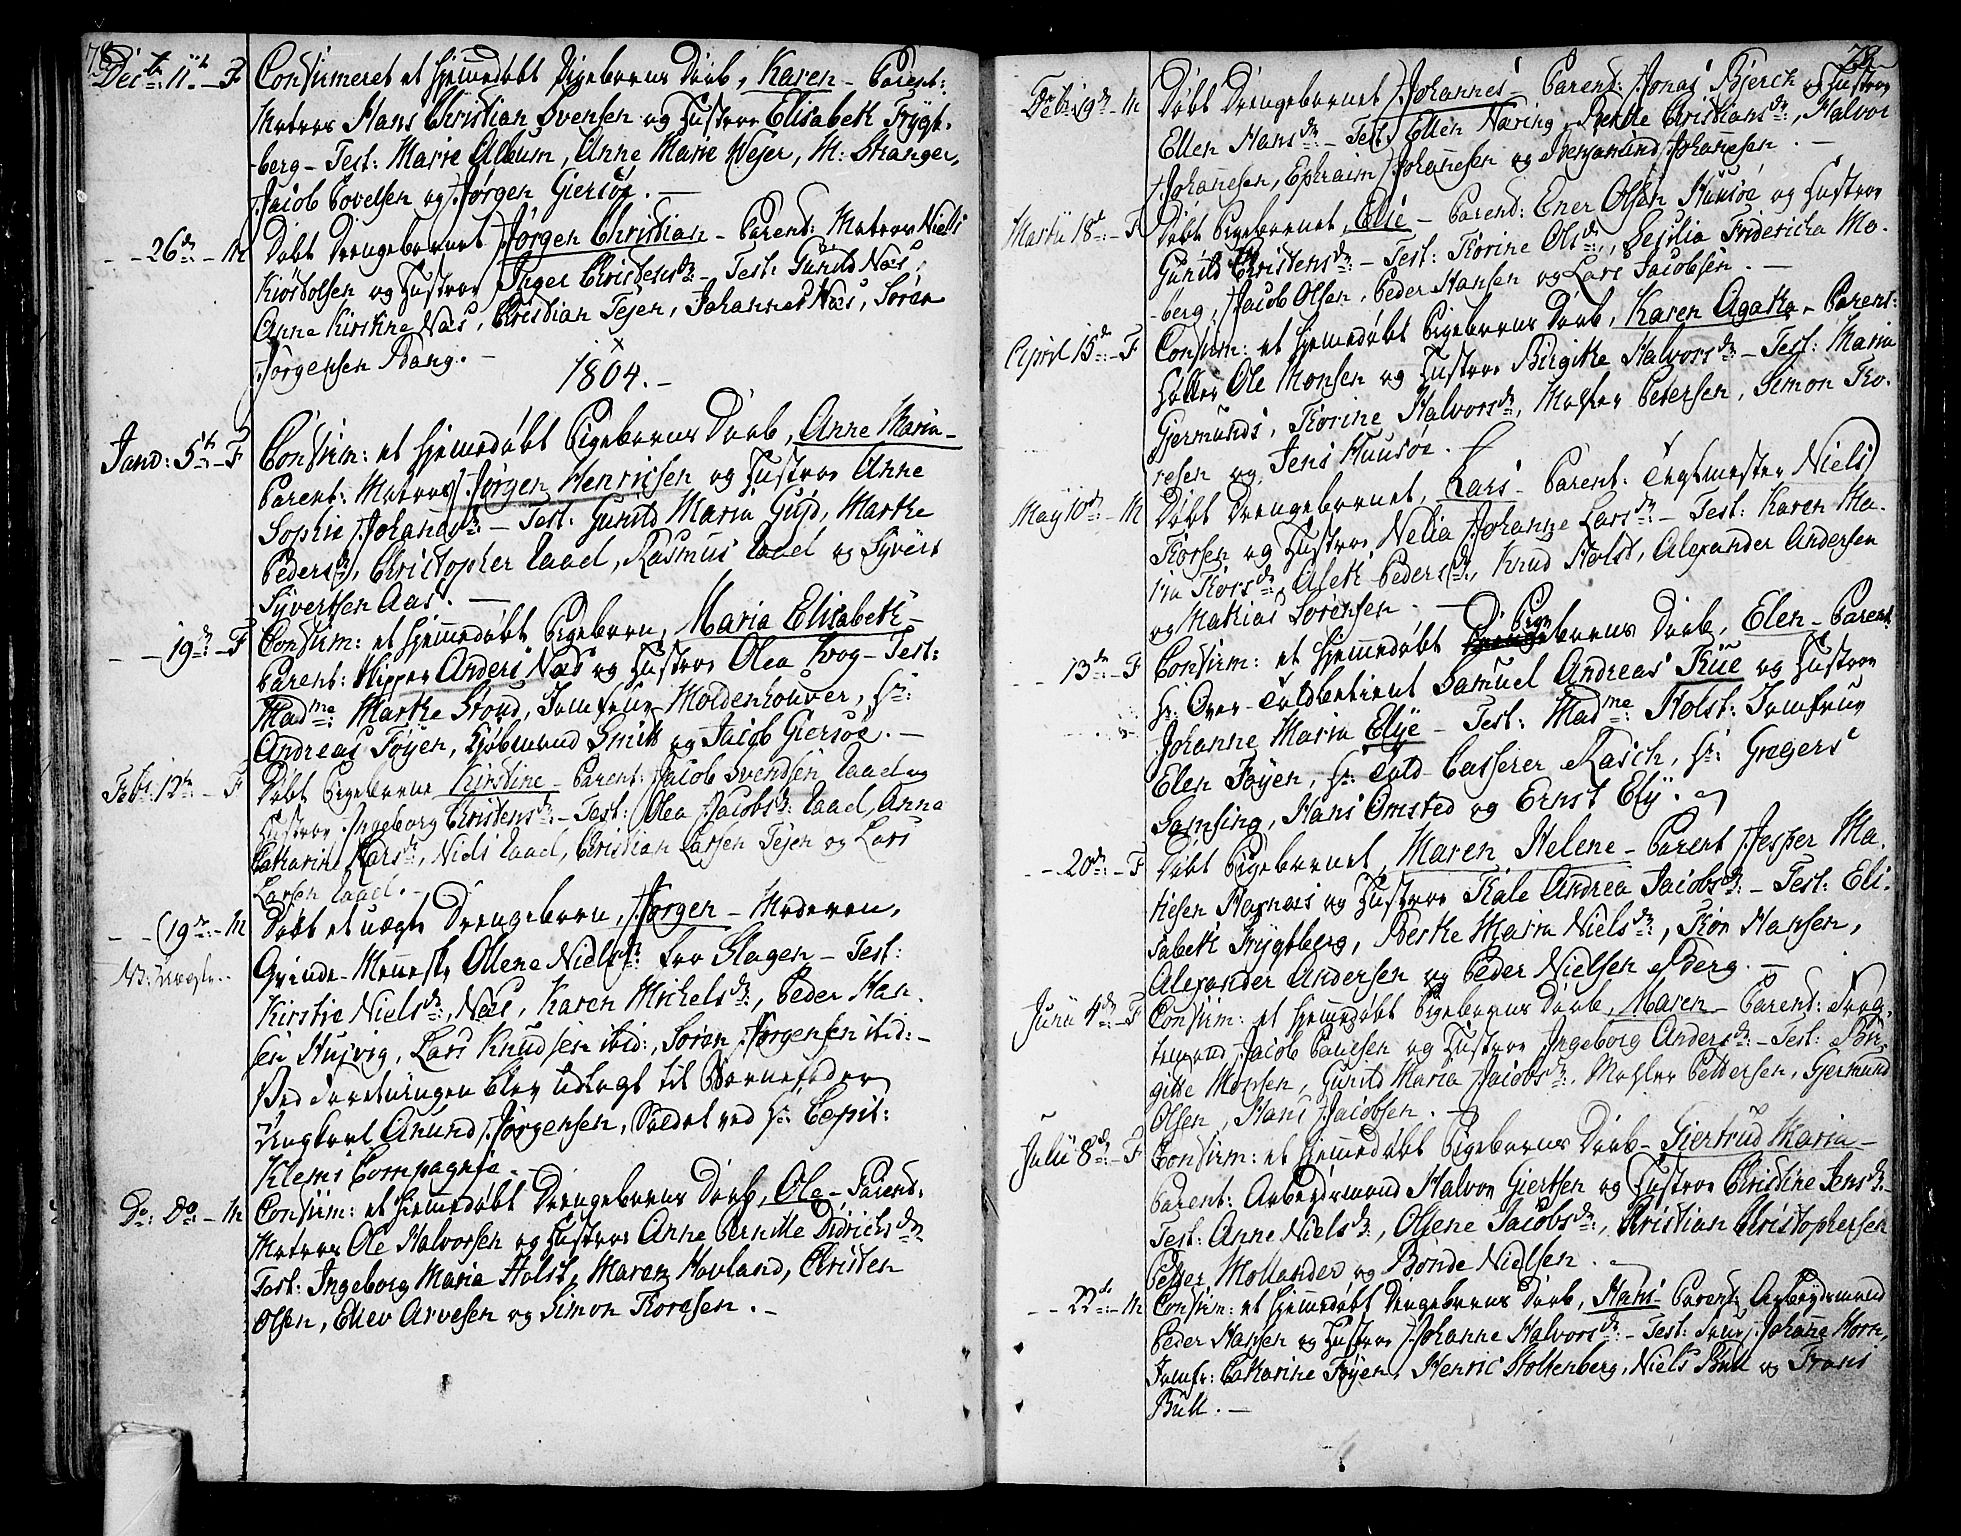 78.
Decbr: 11te – F Confirmeret et hjemmedøbt Pigebarns Daab, Karen – Parent:
Matros Hans Christian Svensen og Hustroe Elisabeth Frygt-
berg – Test: Marie Album, Anne Marie Wejer, M: Stranger,
Jacob Povelsen og Jørgen Giersøe. –
– – 26de – M Døbt Drengebarnet Jørgen Christian – Parent: Matros Niels
Kiøstolsen og Hustroe Inger Christensdr: – Test: Gunild Næs,
Anne Kirstine Næs, Christian Tejen, Johannes Næs, Søren
Jørgensen Bang. –
1804. –
Janv: 5te – F Confirm: et hjemmedøbt Pigebarns Daab, Anne Maria –
Parent: Matros Jørgen Henrichsen og Hustroe Anne
Sophie Johansdr: – Test: Gunild Maria Gujd, Marthe
Pedersdr, Christopher Aael, Rasmus Aael og Syvert
Syvertsen Aas. –
– – 19de – F Confirm: et hjemmedøbt Pigebarn, Maria Elisabeth –
Parent: Skipper Anders Næs og Hustroe Olea Krog – Test:
Madme: Marthe Stoud, Jomfrue Moldenhouver, Hr:
Andreas Føyen, Kjøbmand Smith og Jacob Giersøe. –
Febr: 12te – F Døbt Pigebarnet Kirstine – Parent: Jacob Svendsen Aael og
Hustroe Ingeborg Christensdr: – Test: Olea Jacobsdr: Aael, Anne
Catharine Larsdr:, Niels Aael, Christian Larsen Tejen og Lars
Larsen Aael. –
– – (19de – M Døbt et uægte Drengebarn, Jørgen – Moderen,
NB: Uægte. Qvinde-Menneske Ollene Nielsdr: fra Slagen – Test:
Kirstie Nielsdr:, Næs, Karen Michelsdr:, Peder Han-
sen Husvig, Lars Knudsen ibid:, Søren Jørgensen ibid: –
Ved Daaben blev udlagt til Barnefader
Ungkarl Anund Jørgensen, Soldat ved Hr: Capit:
Klems Compagnie –
Do: Do – M Confirm: et hjemmedøbt Drengebarns Daab, Ole – Parent:
Matros Ole Halvorsen og Hustroe Anne Pernille Didrichsdr:
Test: Ingeborg Maria Holst, Maren Hovland, Christen
Olsen, Ellev Arvesen og Simon Thoresen. –
79.
Febr: 19de – M Døbt Drengebarnet Johannes – Parent: Jonas Bjerch og Hustroe
Ellen Hansdr: – Test: Ellen Næring, Berthe Christiansdr:, Halvor
Johannesen, Ephraim Johannesen og Svenjamind Johannesen. –
Martii 18de – F Døbt Pigebarnet, Elie – Parent: Ener Olsen Huusøe og Hustroe
Gunild Christensdr: – Test: Thorine Olsdr:, Secilia Friderica Mo-
berg, Jacob Olsen, Peder Hansen og Lars Jacobsen. –
April 15de – F Confirm: et hjemmedøbt Pigebarns Daab, Karen Agatha – Parent:
Ole Monsen og Hustroe Birgithe Halvorsdr: – Test: Maria
Gjermunds, Thorine Halvorsdr, Mathæ Petersen, Simon Tho-
resen og Jens Huusøe. –
May 10de – M Døbt Drengebarnet, Lars – Parent: Teglmester Niels
Thorsen og Hustroe Nelia Johanne Larsdr: – Test: Karen Ma-
ria Thorsdr, Aleth Pedersdr, Knud Holst, Alexander Andersen
og Mathias Sørensen. –
– – 13de – F Confirm: et hjemmedøbt Pigebarns Daab, Elen – Parent:
Hr: Over-Toldbetient Samuel Andreas Riie og Hustroe
Johanne Maria Elye – Test: Madme: Holst: Jomfrue
Elen Føyen, Hr: Told-Casserer Rasch, Hr: Gregers
Samsing, Hans Omsted og Ernst Ely. –
– – 20de – F Døbt Pigebarnet, Maren Helene – Parent: Jesper Ma-
thiesen Hafnæs og Hustroe Kale Andrea Jacobsdr: – Test: Eli-
sabeth Frygtberg, Berthe Maria Nielsdr:, Thor Hansen,
Alexander Andersen og Peder Nielsen Aberg. –
Junii 4de – F Confirm: et hjemmedøbt Pigebarns Daab, Maren – Parent:
Jacob Paulsen og Hustroe Ingeborg Andersdr: – Test: Bir-
gitte Monsen, Gunild Maria Jacobsdr:, Mathæ Pettersen, Gjermund
Olsen, Hans Jacobsen. –
Julii 8de – F Confirm: et hjemmedøbt Pigebarns Daab – Giertrud Maria –
Parent: Arbeydsmand Halvor Giertsen og Hustroe Christine Jensdr: –
Test: Anne Nielsdr:, Ollene Jacobsdr:, Christian Christophersen
Petter Mollander og Bonde Nielsen. –
– – 22de – M Confirm: et hjemmedøbt Drengebarns Daab, Hans – Parent: Arbeydsmand
Peder Hansen og Hustroe Johanne Halvorsdr: – Test: Frue Johanne Horn,
Jomfr: Catharine Føyen, Henric Stoltenberg, Niels Bull og Frans
Bull. –